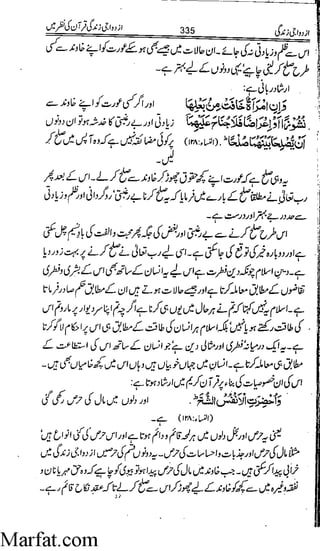 ازدواجی زندگی 335 ازدواجی زندگی قرآن کی نظر میں
اس سے ظلم و زیادتی نہ کی جائے۔ ان حالات میں جیسے بھی ہو سکے عورت کو اپنے خاوند سے کسی
طرح صلح کر لینی چاہیے یہی دونوں کے لیے بہتر ہے۔
ارشاد ربانی ہے:
وَإِنِ امْرَأَةٌ خَافَتْ مِنْ بَعْلِهَا اور اگر کسی عورت کو اپنے خاوند سے
نُشُوزًا أَوْ إِعْرَاضًا فَلَا جُنَاحَ عَلَيْهِمَا زیادتی اور بے رغبتی کا خدشہ ہو تو ان دونوں
أَنْ يُصْلِحَا بَيْنَهُمَا صُلْحًا (النساء:۱۲۸) پر کوئی مضائقہ نہیں ہے کہ وہ آپس میں صلح کر
لیں۔
یہ وہی صلح ہے کہ عورت اپنے کچھ حقوق چھوڑ کر خاوند سے صلح کر لے۔ اس کے بعد پھر
رب تعالیٰ نے مطلقاً صلح کے بارے میں فرمایا کہ یہ صلح کرنا بے رغبتی، روگردانی اور ظلم و زیادتی
سے حد درجے بہتر اور درست ہے۔
اس طرح صلح کرنے سے بے رغبتی اور بغض کی جگہ پھر محبت و الفت کی بادِ نسیم چل سکتی
ہے اور دوبارہ خیر کی توقع کی جا سکتی ہے۔ اسی لیے رب تعالیٰ نے صلح کرنے پر بہت زور دیا
ہے۔ دین اسلام چونکہ دین فطرت ہے اس لیے یہ انسان کے ساتھ بھی اس کے بشری و فطری
تقاضوں کے مطابق معاملہ کرتا ہے اور جیسے اس کے حالات ہوتے ہیں ان کے مطابق حکم صادر فرماتا
ہے۔ اسلام یہ نہیں کہتا کہ تم نے ہر حال میں یوں ہی کرنا ہے اگرچہ تم اپنا سر دیوار پر مارو تم اس
کی طاقت رکھتے ہو یا نہیں! بلکہ اسلام ہر انسان کی طاقت کے مطابق ہی اس پر احکام لاگو کرتا
ہے۔ یہ ایک درمیانہ فطری اور مثالی دین ہے جو انسان کے ساتھ اس کی استطاعت کے
مطابق ہی معاملہ کرتا ہے۔ انسان میں جہاں خوبیاں ہیں وہاں اس میں کچھ خامیاں بھی ہیں۔
اس کی ان خصوصیات کی بناء پر قرآن کریم میں ارشاد ہوتا ہے:
وَأُحْضِرَتِ الْأَنْفُسُ الشُّحَّ اور دلوں میں مال کی حرص رکھی گئی
(النساء:۱۲۸) ہے۔
یعنی یہ حرص اور بخل دلوں میں ہر لمحہ قائم و دائم ہوتا ہے اور اس حرص کی کئی انواع ہیں
مثلاً مال کی حرص اور جذبات و احساسات کی حرص۔ یہ دونوں قسم کی حرصیں ازدواجی زندگی میں
خرابی پیدا کر سکتی ہیں۔ جب خاوند میں مال کی حرص پیدا ہو تو بیوی کو چاہیے کہ وہ حق مہر یا نان و
نفقہ وغیرہ میں سے کچھ کو خاوند کے لیے چھوڑ کر اس سے صلح کر لے تاکہ عقدِ نکاح قائم رہے۔
Marfat.com